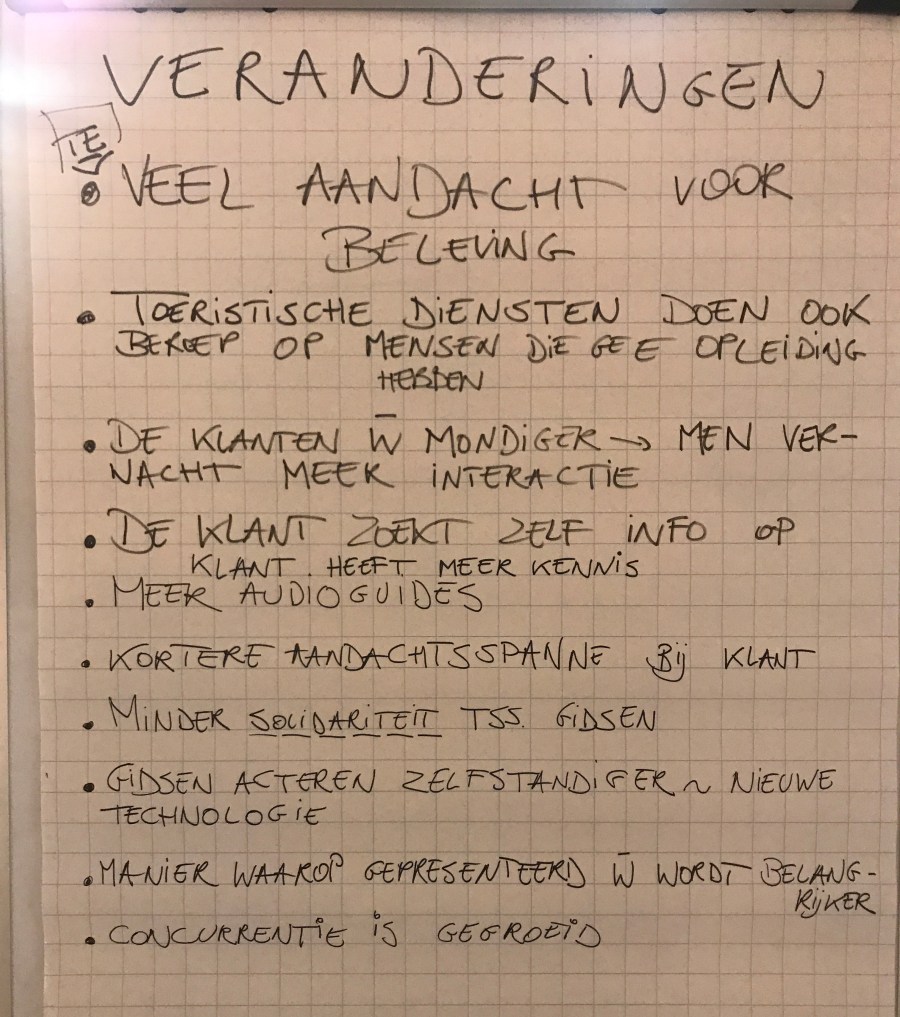 VERANDERINGEN
IE
• VEEL AANDACHT VOOR
BELEVING
• TOERISTISCHE DIENSTEN DOEN OOK
BEROEP OP MENSEN DIE GEE E OPLEIDING
HEBBEN
• DE KLANTEN W̄ MONDIGER → MEN VER-
WACHT MEER INTERACTIE
• DE KLANT ZOEKT ZELF INFO OP
KLANT HEEFT MEER KENNIS
• MEER AUDIOGUIDES
• KORTERE AANDACHTSSPANNE BIJ KLANT
• MINDER SOLIDARITEIT TSS. GIDSEN
• GIDSEN ACTEREN ZELFSTANDIGER ~ NIEUWE
TECHNOLOGIE
• MANIER WAAROP GEPRESENTEERD W̄ WORDT BELANG-
RIJKER
• CONCURRENTIE IS GEGROEID